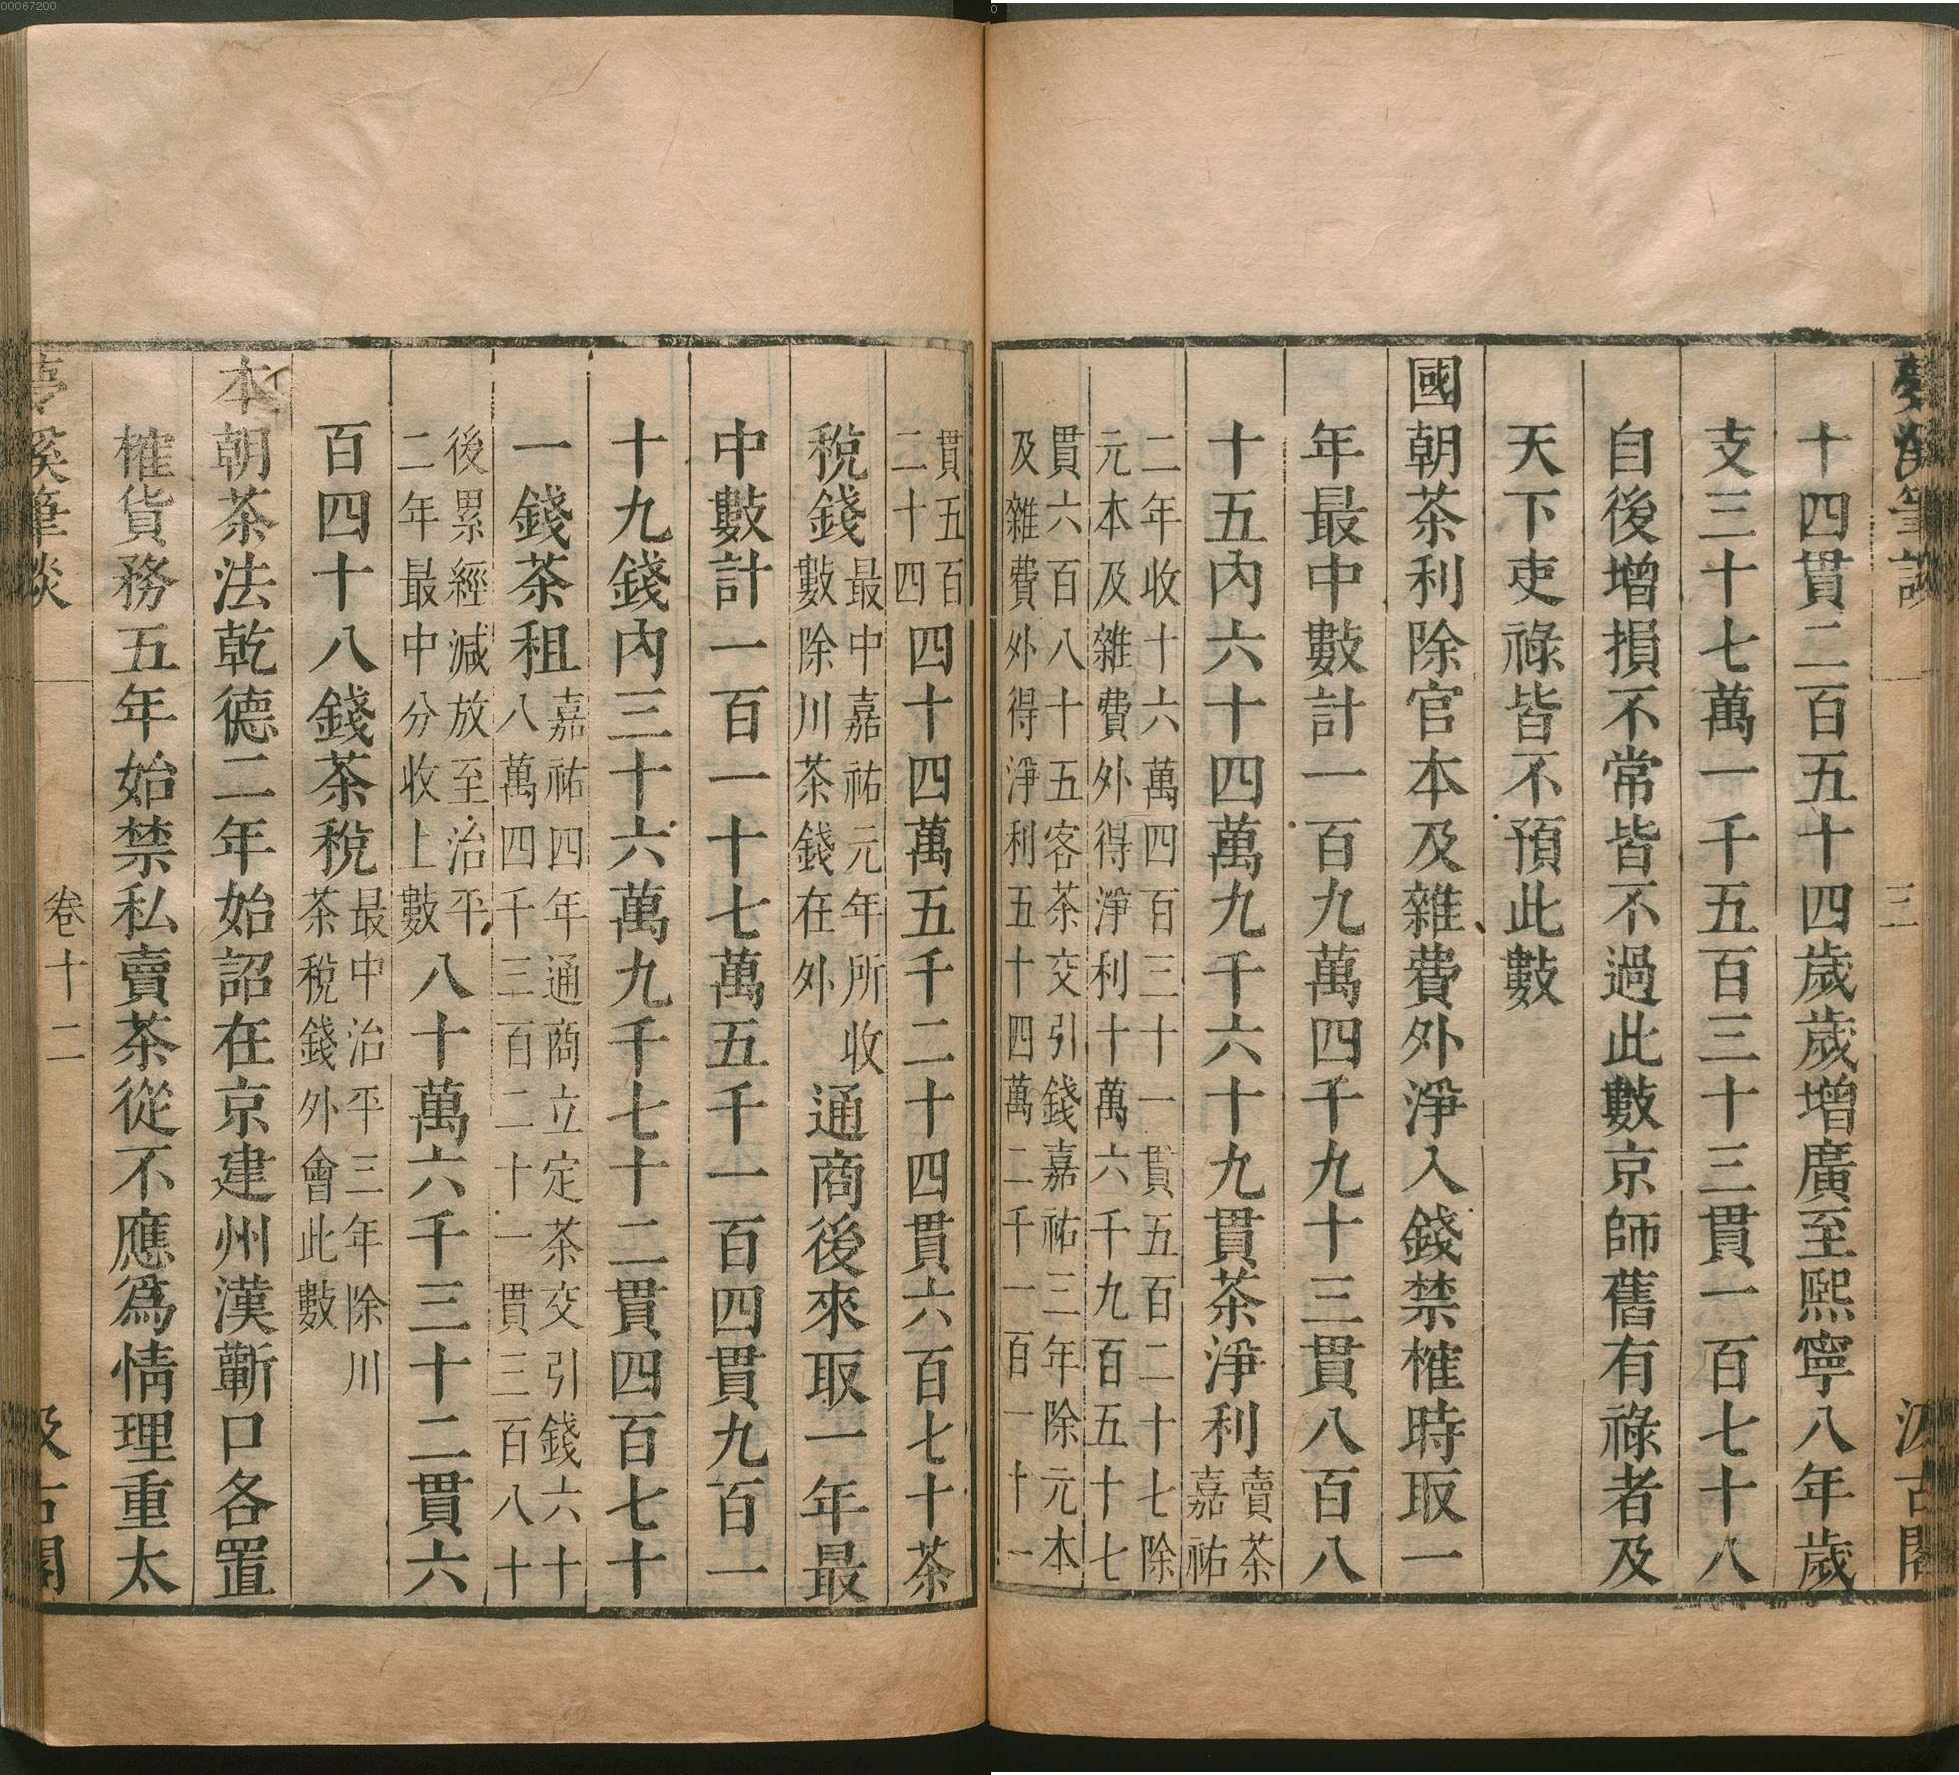 夢溪筆談 三 汲古閣
十四貫二百五十四歲歲增廣至熙寧八年歲
支三十七萬一千五百三十三貫一百七十八
自後增損不常皆不過此數京師舊有祿者及
天下吏祿皆不預此數
國朝茶利除官本及雜費外淨入錢禁榷時取一
年最中數計一百九萬四千九十三貫八百八
十五內六十四萬九千六十九貫茶淨利
賣茶
嘉祐
二年收十六萬四百三十一貫五百二十七除
元本及雜費外得淨利十萬六千九百五十七
貫六百八十五客茶交引錢嘉祐三年除元本
及雜費外得淨利五十四萬二千一百一十一
貫五百
二十四
四十四萬五千二十四貫六百七十茶
稅錢
最中嘉祐元年所收
數除川茶錢在外
通商後來取一年最
中數計一百一十七萬五千一百四貫九百一
十九錢內三十六萬九千七十二貫四百七十
一錢茶租
嘉祐四年通商立定茶交引錢六十
八萬四千三百二十一貫三百八十
後累經減放至治平
二年最中分收上數
八十萬六千三十二貫六
百四十八錢茶稅
最中治平三年除川
茶稅錢外會此數
本朝茶法乾德二年始詔在京建州漢蘄口各置
榷貨務五年始禁私賣茶從不應爲情理重太
夢溪筆談 卷十二 汲古閣
00067200